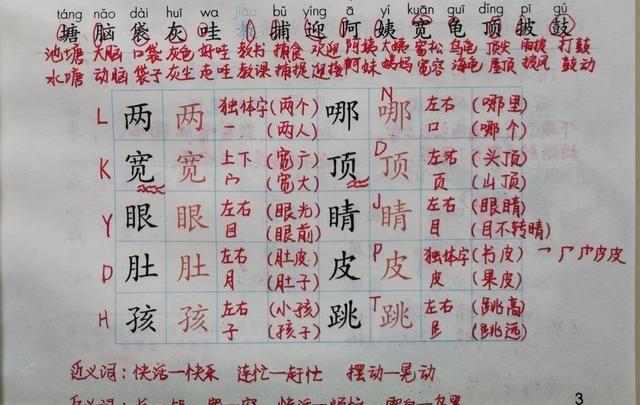 táng nǎo dài huī wa jiāo bǔ yíng ā yí kuān guī dǐng pī gǔ
塘 脑 袋 灰 哇 捕 迎 阿 姨 宽 龟 顶 披 鼓
池塘 大脑 口袋 灰色 好哇 教书 捕食 欢迎 阿姨 大姨 宽松 乌龟 顶尖 雨披 打鼓
水塘 动脑 袋子 灰尘 走哇 教课 捕捉 迎接 阿妹 姨妈 宽容 海龟 屋顶 披风 鼓动
L 两 两 独体字 一 (两个) (两人) 哪 N 哪 左右 口 (哪里) (哪个)
K 宽 宽 上下 宀 (宽广) (宽大) 顶 D 顶 左右 页 (头顶) (山顶)
Y 眼 眼 左右 目 (眼光) (眼前) 睛 J 睛 左右 目 (眼睛) (目不转睛)
D 肚 肚 左右 月 (肚皮) (肚子) 皮 P 皮 独体字 皮 (书皮) (果皮)
H 孩 孩 左右 子 (小孩) (孩子) 跳 T 跳 左右 (跳高) (跳远)
近义词：快活—快乐 连忙—赶忙 摆动—晃动
3